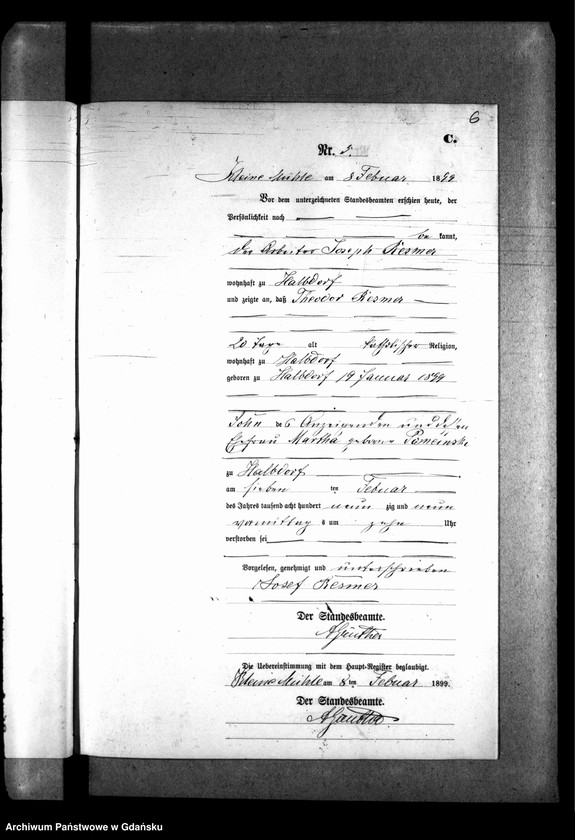 6
C.
Nr. 5.
Kleine Mühle am 8 Februar 1899
Vor dem unterzeichneten Standesbeamten erschien heute, der
Persönlichkeit nach
be kannt,
der Arbeiter Joseph Resmer
wohnhaft zu Halbdorf
und zeigte an, daß Theodor Resmer
20 Tage alt katholischer Religion,
wohnhaft zu Halbdorf
geboren zu Halbdorf 19 Januar 1899
Sohn des Anzeigenden und dessen
Ehefrau Martha geborene
zu Halbdorf
am sieben ten Februar
des Jahres tausend acht hundert neun zig und neun
vormittag s um zehn Uhr
verstorben sei
Vorgelesen, genehmigt und unterschrieben
Josef Resmer
Der Standesbeamte.
AGünther
Die Uebereinstimmung mit dem Haupt-Register beglaubigt.
Kleine Mühle am 8 ten Februar 1899.
Der Standesbeamte.
AGünther
Archiwum Państwowe w Gdańsku